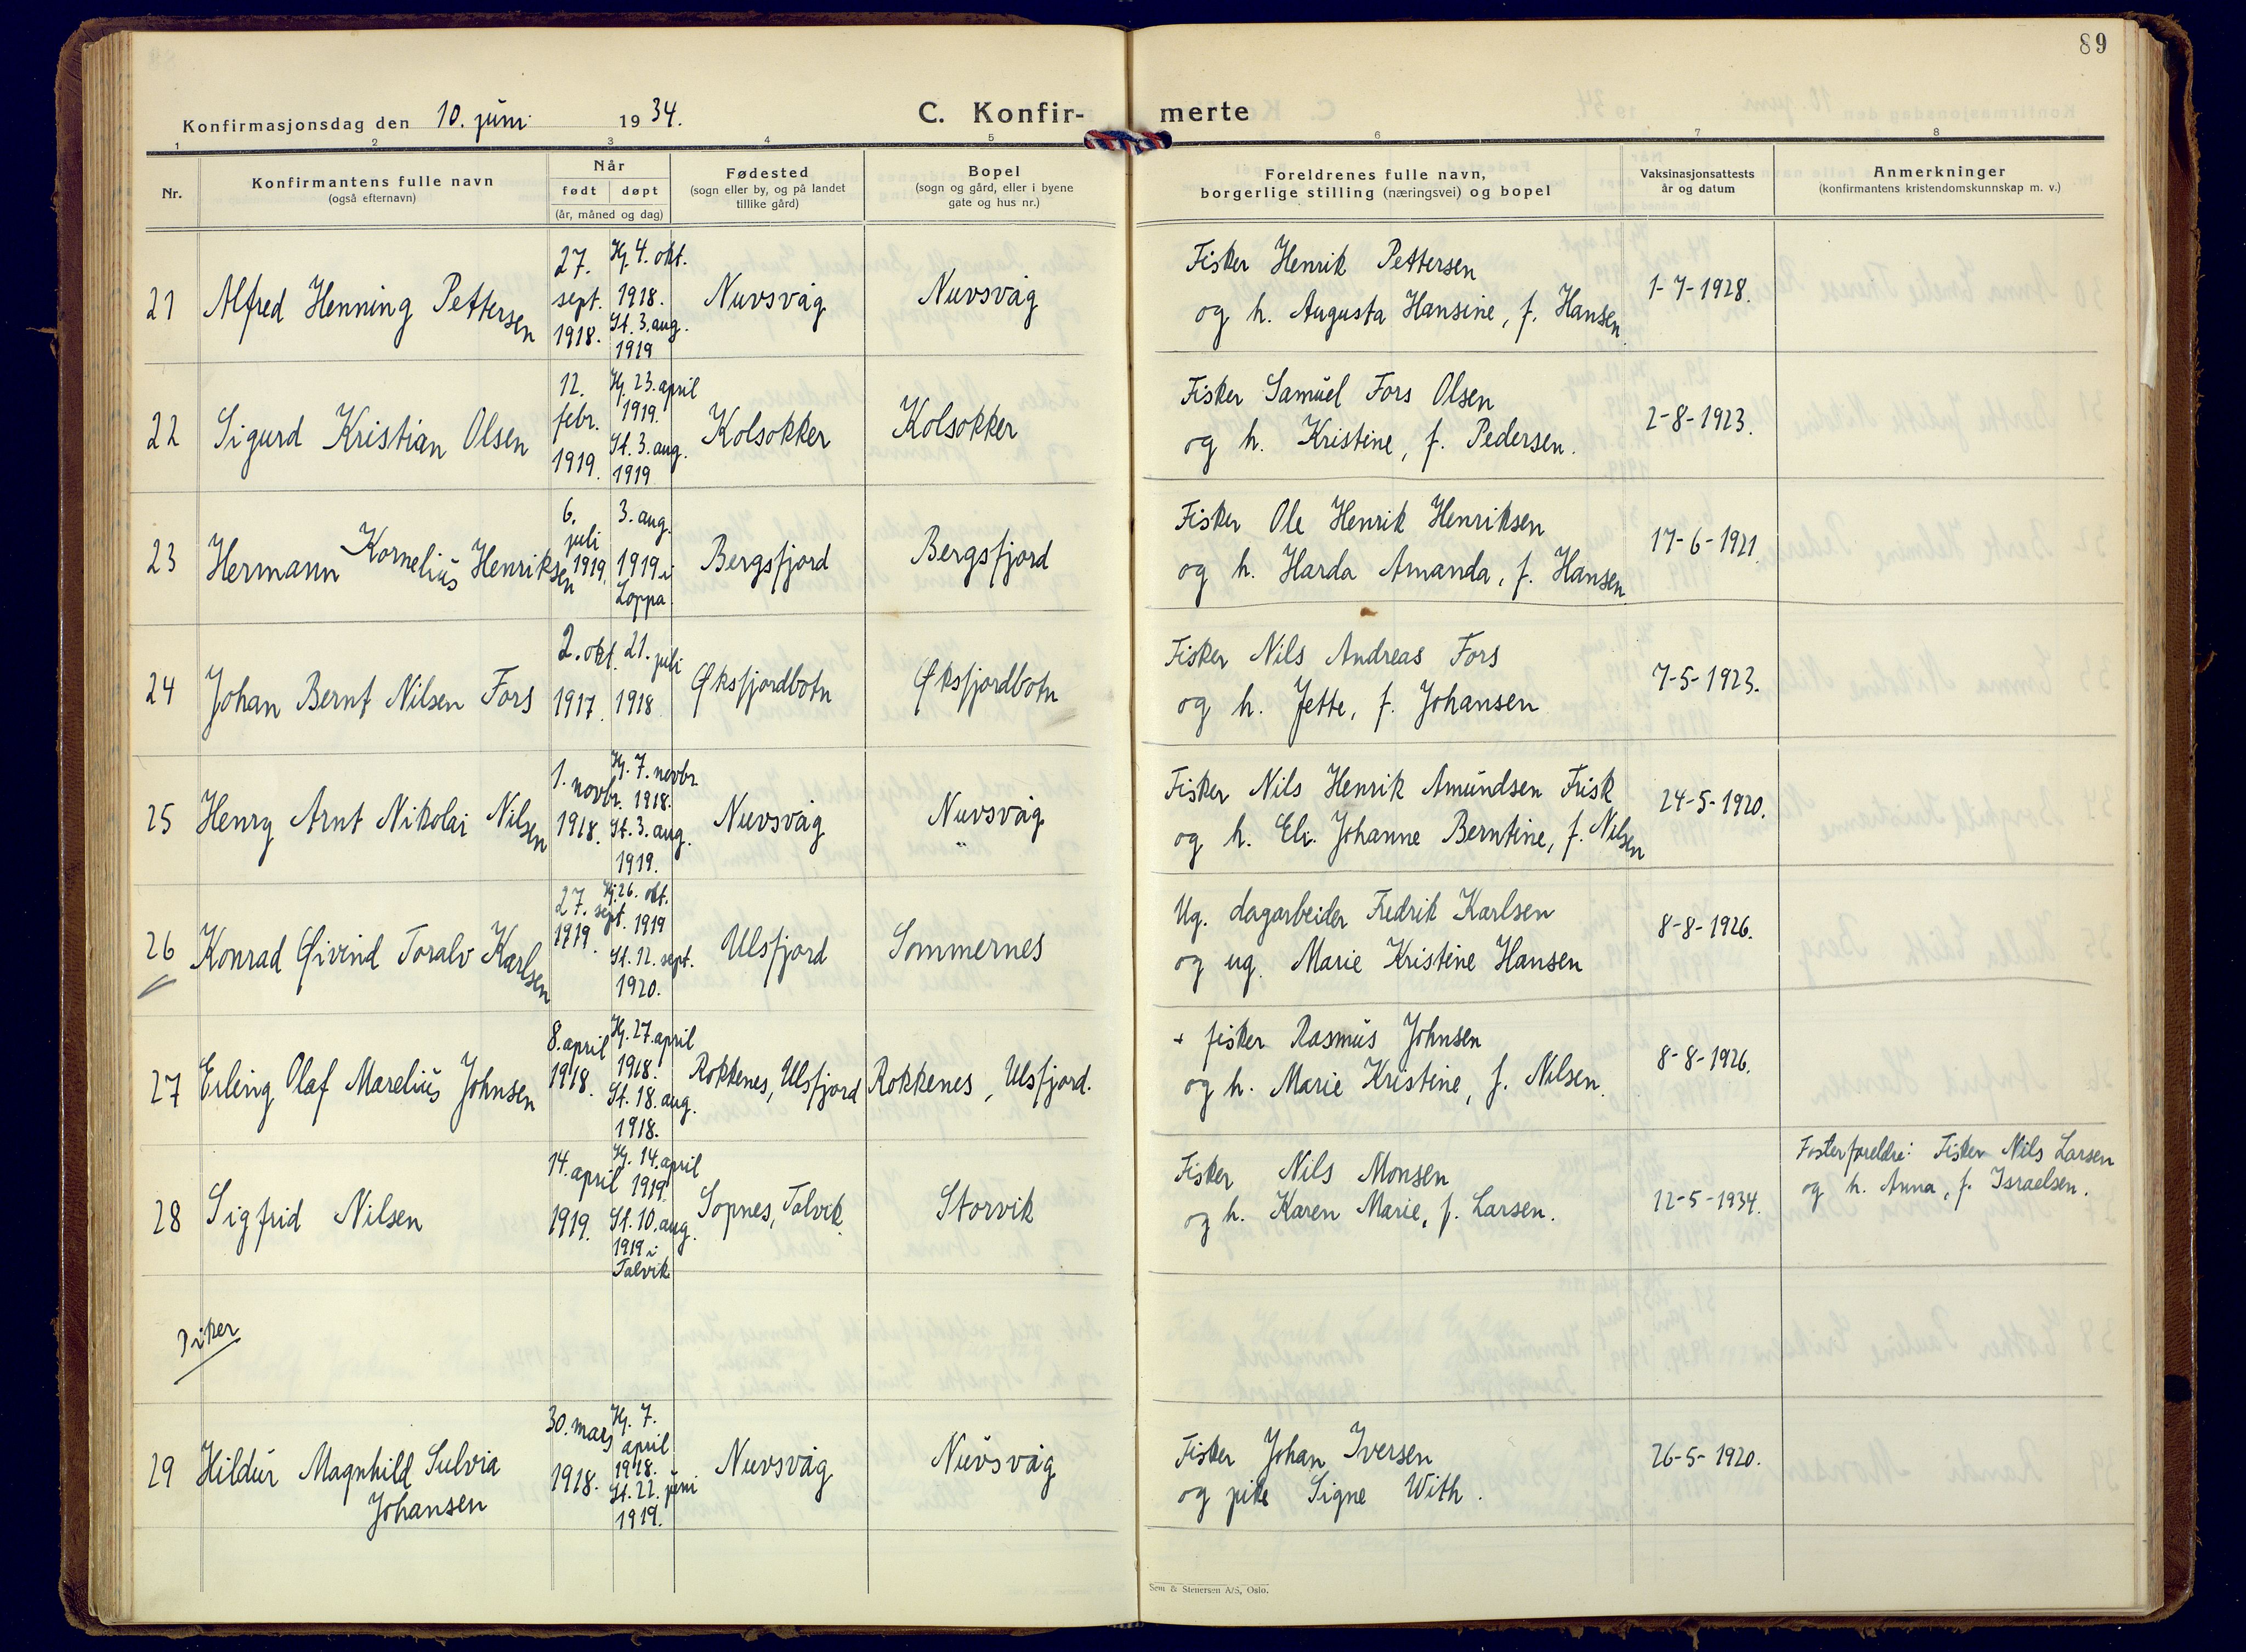 89
Konfirmasjonsdag den 10. juni 1934.
C. Konfir-
merte
1 2 3 4 5 6 7 8
Nr.
Konfirmantens fulle navn
(også efternavn)
Når
født døpt
(år, måned og dag)
Fødested
(sogn eller by, og på landet
tillike gård)
Bopel
(sogn og gård, eller i byene
gate og hus nr.)
Foreldrenes fulle navn,
borgerlige stilling (næringsvei) og bopel
Vaksinasjonsattests
år og datum
Anmerkninger
(konfirmantens kristendomskunnskap m. v.)
21
Alfred Henning Pettersen
27.
sept.
1918.
Hj. 4. okt.
1918.
St. 3. aug.
1919
Nuvsvåg
Nuvsvåg
Fisker Henrik Pettersen
og h. Augusta Hansine, f. Hansen
1-7-1928.
22
Sigurd Kristian Olsen
12.
febr.
1919.
Hj. 23. april
1919.
St. 3. aug.
1919
Kolsokker
Kolsokker
Fisker Samuel Fors Olsen
og h. Kristine, f. Pedersen.
2-8-1923.
23
Hermann Kornelius Henriksen
6.
juli
1919.
3. aug.
1919 i
Loppa
Bergsfjord
Bergsfjord
Fisker Ole Henrik Henriksen
og h. Harda Amanda, f. Hansen
17-6-1921.
24
Johan Bernt Nilsen Fors
2. okt.
1917.
21. juli
1918
Øksfjordbotn
Øksfjordbotn
Fisker Nils Andreas Fors
og h. Jette, f. Johansen
7-5-1923.
25
Henry Arnt Nikolai Nilsen
1. novbr.
1918.
Hj. 7. novbr.
1918.
St. 3. aug.
1919.
Nuvsvåg
Nuvsvåg
Fisker Nils Henrik Amundsen Frisk
og h. Eli Johanne Berntine, f. Nilsen
24-5-1920.
26
Konrad Øivind Toralv Karlsen
27. sept.
1919.
Hj. 26. okt.
1919
St. 12. sept.
1920.
Ulsfjord
Sommernes
Ug. dagarbeider Fredrik Karlsen
og ug. Marie Kristine Hansen
8-8-1926.
27
Erling Olaf Marelius Johnsen
8. april
1918.
Hj. 27. april
1918.
St. 18. aug.
1918.
Rokkenes, Ulsfjord
Rokkenes, Ulsfjord.
+ fisker Rasmus Johnsen
og h. Marie Kristine, f. Nilsen.
8-8-1926.
28
Sigfrid Nilsen
14. april
1919.
Hj. 14. april
1919.
St. 10. aug.
1919 i
Talvik
Sopnes, Talvik.
Storvik
Fisker Nils Monsen
og h. Karen Marie, f. Larsen.
12-5-1934.
Fosterforeldre: Fisker Nils Larsen
og h. Anna, f. Israelsen.
Piker
29
Hildur Magnhild Sulvia
Johansen
30. mars
1918.
Hj. 7.
april
1918.
St. 22. juni
1919.
Nuvsvåg
Nuvsvåg
Fisker Johan Iversen
og pike Signe With.
26-5-1920.
Sem & Stenersen A/S, Oslo.